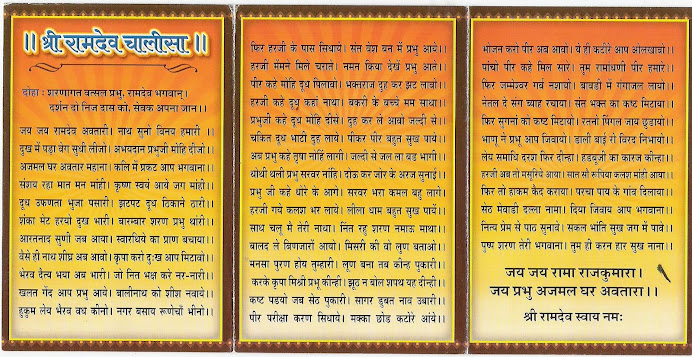 ॥ श्री रामदेव चालीसा ॥
दोहा : शरणागत वत्सल प्रभु, रामदेव भगवान।
दर्शन दो निज दास को, सेवक अपना जान।।
जय जय रामदेव अवतारी। नाथ सुनो विनय हमारी ।।
दुख में पड़ा वेग सुधी लीजो। अभयदान प्रभुजी मोहि दीजो।
अजमल घर अवतार महाना। कलि में प्रकट आप भगवाना।
संशय रहा मात मन मांही। कृष्ण स्वयं आये जग मांही।
दूध उफणता भुजा पसारी। झटपट दूध ठिकाने ठारी।
शंका मेट हरयो दुख भारी। बारम्बार शरण प्रभु थारी।
आरतनाद सुणी जब आया। स्वारथिये का प्राण बचाया।
वैसे ही नाथ शीघ्र अब आवो। कृपा करो दुःख आप मिटावो।
भैरव दैत्य भया अब भारी। जो नित भक्ष करे नर-नारी।
खलत गेंद आप प्रभु आये। बालीनाथ को शीश नवाये।
हुकुम लेय भैरव वध कीनो। नगर बसाय रूणेचो भीनो।
फिर हरजी के पास सिधाये। संत वेश बन में प्रभु आये।
हरजी मेंमने मिले चराते। नमन किया देखें प्रभु आते।
पीर कहे मोहि दूध पिलावो। भक्तराज दुह कर झट लावो।
हरजी कहे दूध कहां नाथा। बकरी के बच्चे मम साथा।
प्रभुजी कहे दूध मोहि दीसे। दुह कर ले आवो जल्दी से।
चकित दूध भाटी दुह लाये। पीकर पीर बहुत सुख पाये।
अब प्रभु कहे तृषा नोहिं लागी। जल्दी से जल ला बड़ भागी।
थोथी थली प्रभु सरवर नाहिं। दोऊ कर जोर के अरज सुनाई।
प्रभु जी कहे धोरे के आगे। सरवर भरा कमल बहु लागे।
हरजी गये कलश भर लाये। लीला धाम बहुत सुख पाये।
साथ चलू मैं तेरी नाथा। नित रह शरण नमाऊ माथा।
बालद ले बिणजारों आयो। मिसरी की वो लुण बताओ।
मनसा पुरण होय तुम्हारी। लुण बना तब कीन्ह पुकारी।
करके कृपा मिश्री प्रभु कीन्ही। झूठ न बोल शपथ यह दीन्ही।
कष्ट पडयो जब सेठ पुकारी। सागर डुबत नाव उबारी।
पीर परीक्षा करण सिधाये। मक्का छोड कटोरे आंये।
भोजन करो पीर अब आवो। ये ही कटोरे आप ओलखावो।
पांचा पीर कहे मिल सारे। तुम रामांधणी पीर हमारे।
फिर जम्मेश्वर गर्व नशायो। बाबड़ी में गंगाजल लायो।
नेतल दे संग ब्याह रचाया। संत भक्त का कष्ट मिटाया।
फिर सुगनां को कष्ट मिटायो। रतनों पिंगल जाय छुडायो।
भाणु में प्रभु आप जिवायो। डाली बाई रो विरद निभायो।
लेय समाधि दरश फिर दीन्हा। हडबूजी का कारज कीन्हा।
हरजी अब तो मसुरिये आया। सात सौ रूपिया कलश मांही आया।
फिर तो हाकम कैद कराया। परचा पाय के गांव दिलाया।
सेठ मेवाडी दल्ला नामा। दिया जिवाय आप भगवाना।
नित्य प्रेम से पाठ सुनावे। सकल भांति सुख जग में पावे।
पुष्प शरण तेरी भगवाना। तुम हो करन हार सुख नाना।
जय जय रामा राजकुमारा।
जय प्रभु अजमल घर अवतारा।।
श्री रामदेव स्वाय नमः